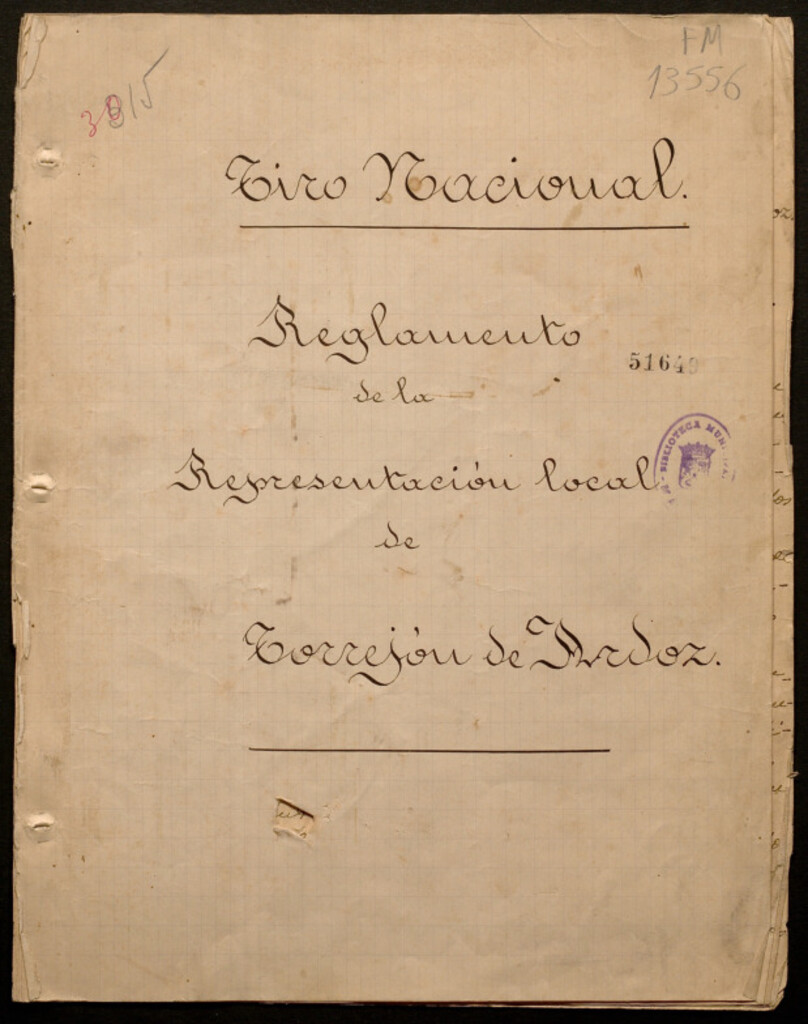 FM
13556
Tiro Nacional.
Reglamento
51649
de la
BIBLIOTECA
Representación local
de
Torrejón de Ardoz.